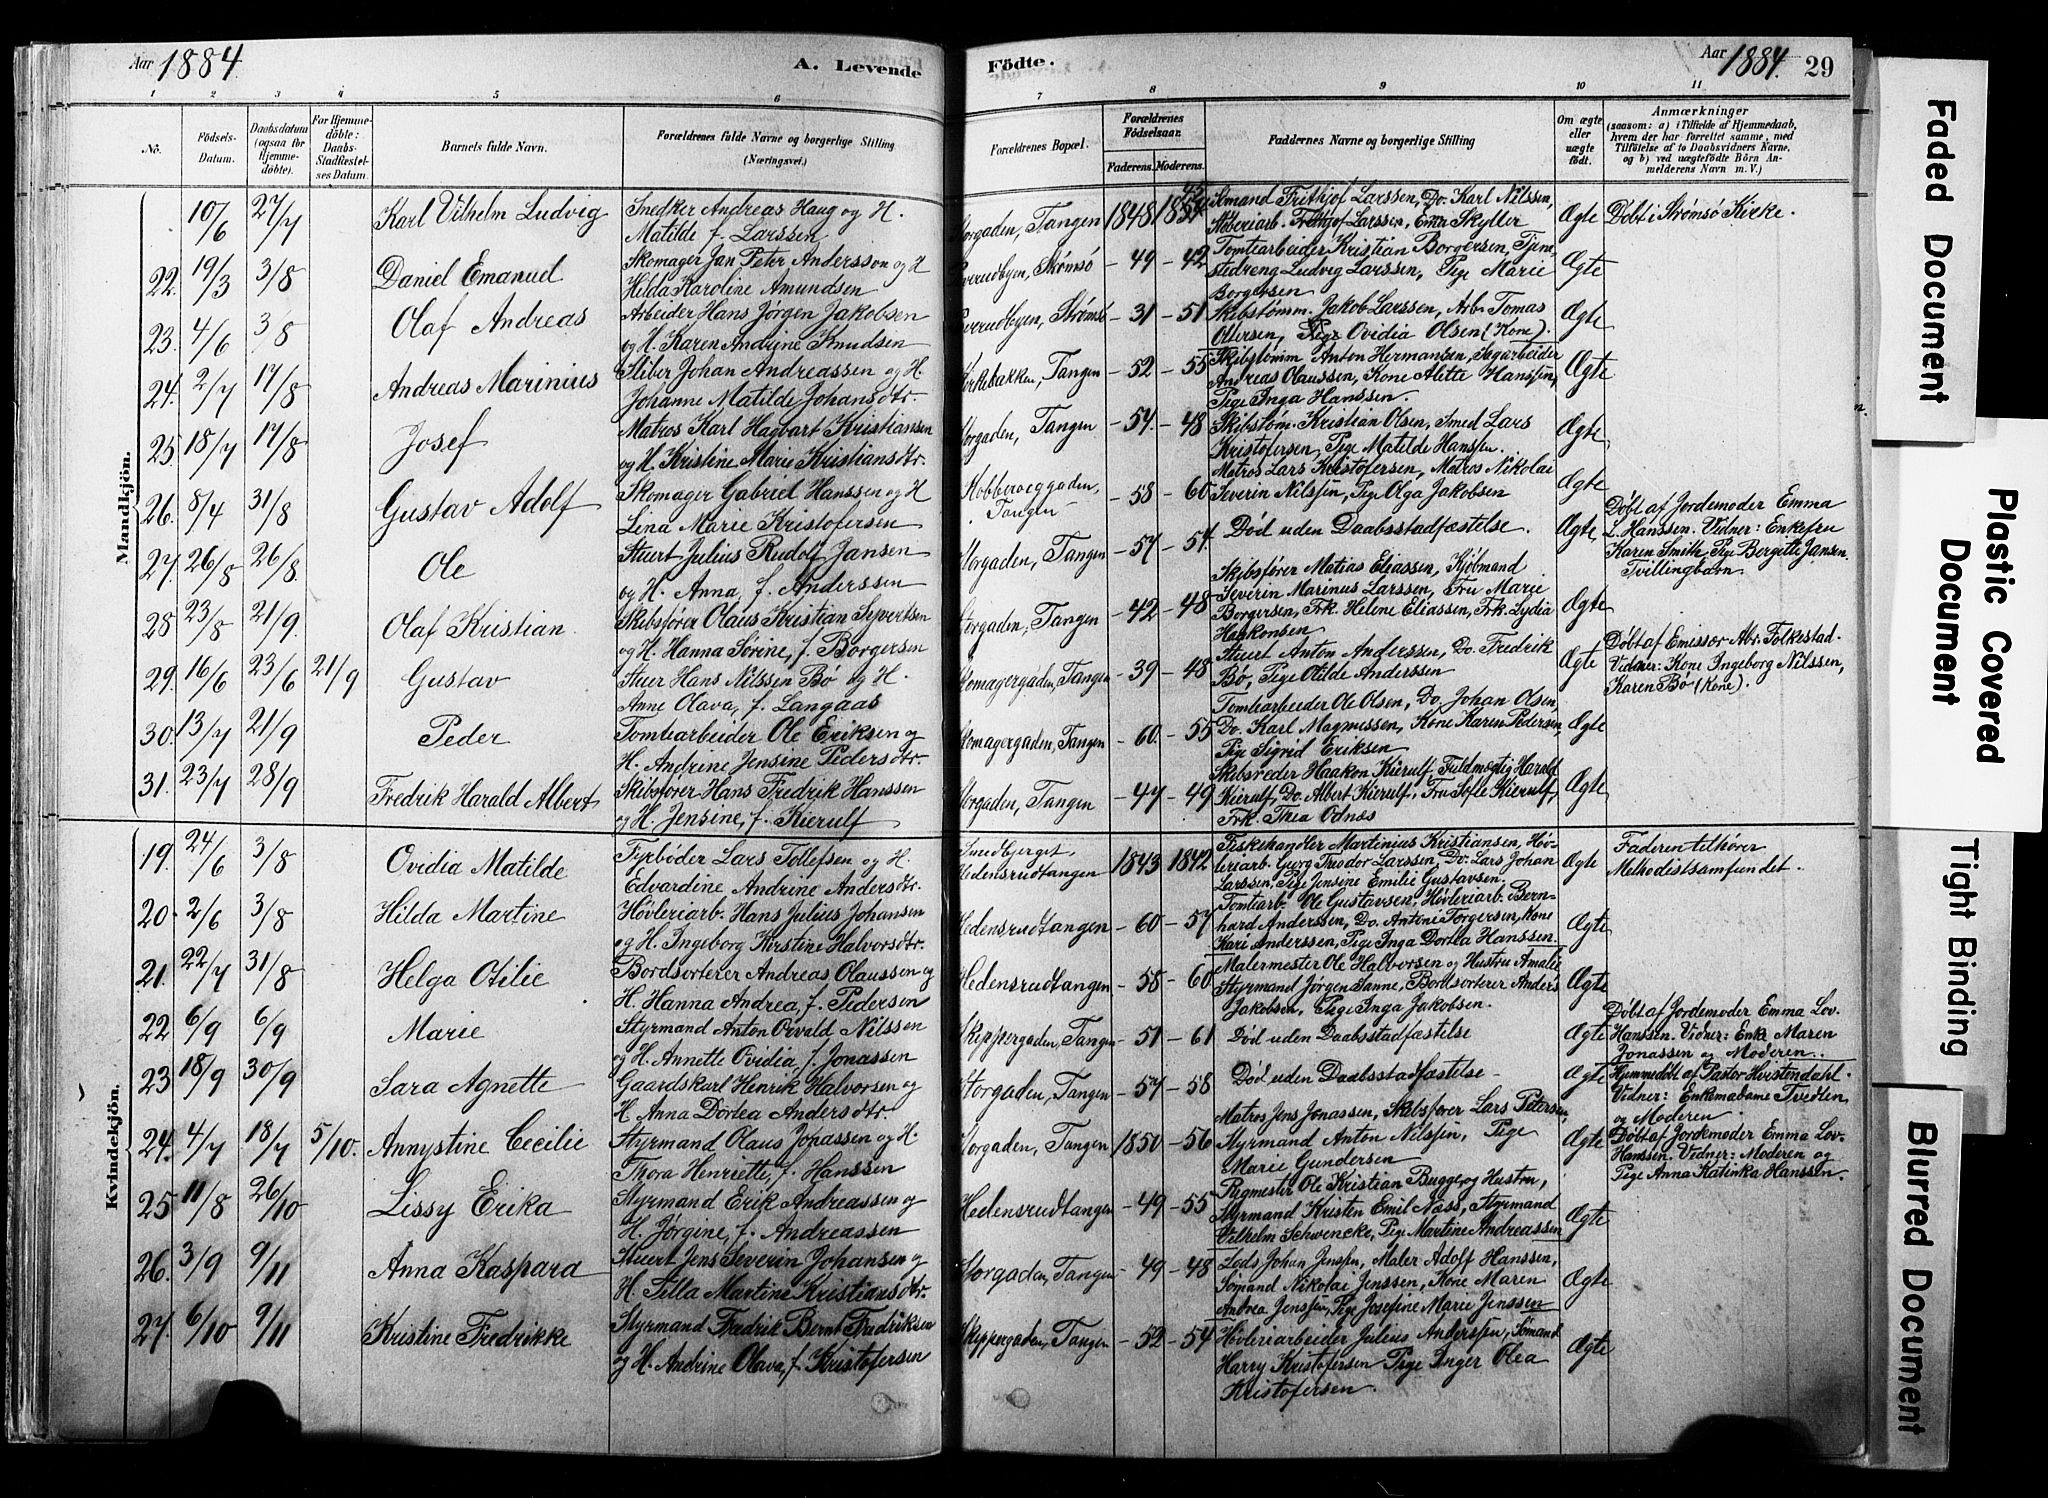 Aar 1884
A. Levende
1 2 3 4 5 6
No.
Födsels-
Datum.
Daabsdatum
(ogsaa for
Hjemme-
döbte).
For Hjemme-
döbte:
Daabs-
Stadfæstel-
ses Datum.
Barnets fulde Navn.
Forældrenes fulde Navne og borgerlige Stilling
(Næringsvei.)
Mandkjön.
10/6 27/7 Karl Vilhelm Ludvig Snedker Andreas Haug og H.
Matilde f. Larssen
22. 19/3 3/8 Daniel Emanuel Skomager Jan Peter Andersson og H
Hilda Karoline Amundsen
23. 4/6 3/8 Olaf Andreas Arbeider Hans Jørgen Jakobsen
og H. Karen Andrine Knudsen
24. 2/7 17/8 Andreas Marinius Støber Johan Andreassen og H.
Johanne Matilde Johansdtr.
25. 18/7 17/8 Josef Matros Karl Hagbart Kristiansen
og H. Kristine Marie Kristiansdtr.
26. 8/4 31/8 Gustav Adolf Skomager Gabriel Hanssen og H
Lina Marie Kristofersen
27. 26/8 26/8. Ole Stuert Julius Rudolf Jansen
og H. Anna, f. Anderssen
28 23/8 21/9. Olaf Kristian. Skibsfører Olaus Kristian Syvertsen
og H. Hanna Sørine, f. Borgersen
29. 16/6 23/6 21/9 Gustav Stuer Hans Nilssen Bø og H.
Anne Olava, f. Langaas
30. 13/7 21/9 Peder Tomtearbeider Ole Eriksen og
H. Andrine Jensine Pedersdtr.
31. 23/7 28/9 Fredrik Harald Albert Skibsfører Hans Fredrik Hanssen
og H. Jensine, f. Kierulf
Kvindekjön.
19. 24/6 3/8 Ovidia Matilde Fyrbøder Lars Tollefsen og H.
Edvardine Andrine Andersdtr.
20. 2/6 3/8 Hilda Martine Høvleriarb. Hans Julius Johansen
og H. Ingeborg Kirstine Halvorsdtr.
21. 22/7 31/8 Helga Otilie Bordsorterer Andreas Olaussen og
H. Hanna Andrea, f. Pedersen
22 6/9 6/9 Marie Styrmand Anton Orvald Nilssen
og H. Annette Ovidia, f. Jonassen
23 18/9 30/9 Sara Agnette Gaardskarl Henrik Halvorsen og
H. Anna Dorlea Andersdtr.
24. 4/7 18/7 5/10. Annystine Cecilie Styrmand Olaus Jonassen og H.
Thora Henriette, f. Hanssen
25 11/8 26/10 Lissy Erika Styrmand Erik Andreassen og
H. Jørgine, f. Andreassen
26. 3/9 9/11 Anna Kaspara Stuert Jens Severin Johansen og
H. Tilla Martine Kristiansdtr.
27. 6/10 9/11 Kristine Fredrikke Styrmand Fredrik Bernt Fredriksen
og H. Andrine Olava, f. Kristofersen
Födte.
Aar 1884. 29
7 8 9 10 11
Forældrenes Bopæl.
Forældrenes
Födselsaar.
Faderens. Moderens.
Faddernes Navne og borgerlige Stilling
Om ægte
eller
uægte
födt.
Anmærkninger
(saasom: a) i Tilfælde af Hjemmedaab,
hvem der har forrettet samme, med
Tilföielse af to Daabsvidners Navne,
og b) ved uægtefödte Börn An-
melderens Navn m. V.)
Storgaden, Tangen 1848 Sømand Frithjof Larssen, Do. Karl Nilssen,
Støberiarb. Larssen, Emma Skyller Ægte Døbt i Strømsø Kirke.
Sverudbyen, Strømsø - 49 - 42 Tomtearbeider Kristian Borgersen, Tjene-
stedreng Ludvig Larssen, Pige Marie
Borgersen Ægte
Sverudbyen, Strømsø - 31 - 51 Skibstømm. Jakob Larssen, Arb. Tomas
Olsen, Pige Ovidia Olsen (Kone). Ægte
Kirkebakken, Tangen - 52 - 55 Skibstømm Anton Hermansen, Sagarbeider
Andreas Olaussen, Kone Alette Hansen,
Pige Inga Hanssen. Ægte
Storgaden, Tangen - 54. - 48 Skibstøm. Kristian Olsen, Smed Lars
Kristofersen, Pige Matilde Hanssen. Ægte
Kobberveggaden,
Tangen - 58 - 60 Matros Lars Kristofersen, Matros Nikolai
Severin Nilssen, Pige Olga Jakobsen Ægte
Storgaden, Tangen - 57 - 54. Død uden Daabsstadfæstelse. Ægte
Døbt af Jordemoder Emma
L. Hanssen. Vidner: Enkefru
Karen Smith, Pige Bergitte Jansen.
Tvillingbarn.
Storgaden, Tangen - 42 - 48 Skibsfører Matias Eliassen, Kjøbmand
Severin Marinus Larssen, Fru Marie
Borgersen, Frk. Helene Eliassen, Frk. Lydia
Haakonsen Ægte
Skomagergaden, Tangen - 39 - 48 Stuert Anton Anderssen, Do. Fredrik
Bø, Pige Otilde Anderssen Ægte
Døbt af Emissær Abr. Folkestad.
Vidner: Kone Ingeborg Nilssen,
Karen Bø (Kone).
Skomagergaden, Tangen - 60. - 55 Tomtearbeider Ole Olsen, Do. Johan Olsen,
Do. Karl Magnussen, Kone Karen Pedersen,
Pige Sigrid Eriksen Ægte
Storgaden, Tangen - 47 - 49 Skibsreder Haakon Kierulf, Fuldmægtig Harald
Kierulf, Do. Albert Kierulf, Fru Sofie Kierulf,
Frk. Thea Odnæs Ægte
Smedbjerget,
Hedensrudtangen 1843 1842 Fiskehandler Martinius Kristiansen, Høv-
leriarb. Georg Theodor Larssen, Do. Lars Johan
Larssen, Pige Jensine Emilie Gustavsen. Ægte
Faderen tilhører
Methodistsamfundet.
Hedensrudtangen - 60 - 57 Tomtearb. Ole Gustavsen, Høvleriarb. Bern-
hard Anderssen, Do. Antoni Torgersen, Kone
Kari Anderssen, Pige Inga Dorlea Hanssen Ægte
Hedensrudtangen - 58 - 60 Malermester Ole Halvorsen og Hustru Amalie
Styrmand Jørgen Sanne, Bordsorterer Anders
Jakobsen, Pige Inga Jakobsen. Ægte
Skippergaden, Tangen - 51 - 61 Død uden Daabsstadfæstelse Ægte
Døbt af Jordemoder Emma Lov.
Hanssen. Vidner: Enke Maren
Jonassen og Moderen.
Storgaden, Tangen - 57 - 58 Død uden Daabsstadfæstelse - Ægte
Hjemmedøbt af Pastor Hvistendahl.
Vidner: Enkemadame Tvedten
og Moderen
Storgaden, Tangen 1850 - 56 Matros Jens Jonassen, Skibsfører Lars Petersen,
Styrmand Anton Nilssen, Pige
Marie Gundersen Ægte
Døbt af Jordemoder Emma Lov-
Hanssen. Vidner: Moderen og
Pige Anna Katinka Hanssen.
Hedensrudtangen - 49 - 55 Rygmester Ole Kristian Bugge og Hustru,
Styrmand Kristen Emil Næss, Styrmand
Vilhelm Schwencke, Pige Martine Andreassen Ægte
Storgaden, Tangen - 49 - 48 Lods Johan Jenssen, Maler Adolf Hanssen,
Sømand Nikolai Jenssen, Kone Maren
Andrea Jenssen, Pige Josefine Marie Jenssen Ægte
Skippergaden, Tangen - 52 - 54 Høvleriarbeider Julius Anderssen, Sømand
Harry Kristofersen Pige Inger Olea
Kristofersen. Ægte
Faded Document
Plastic Covered
Document
Tight Binding
Blurred Document